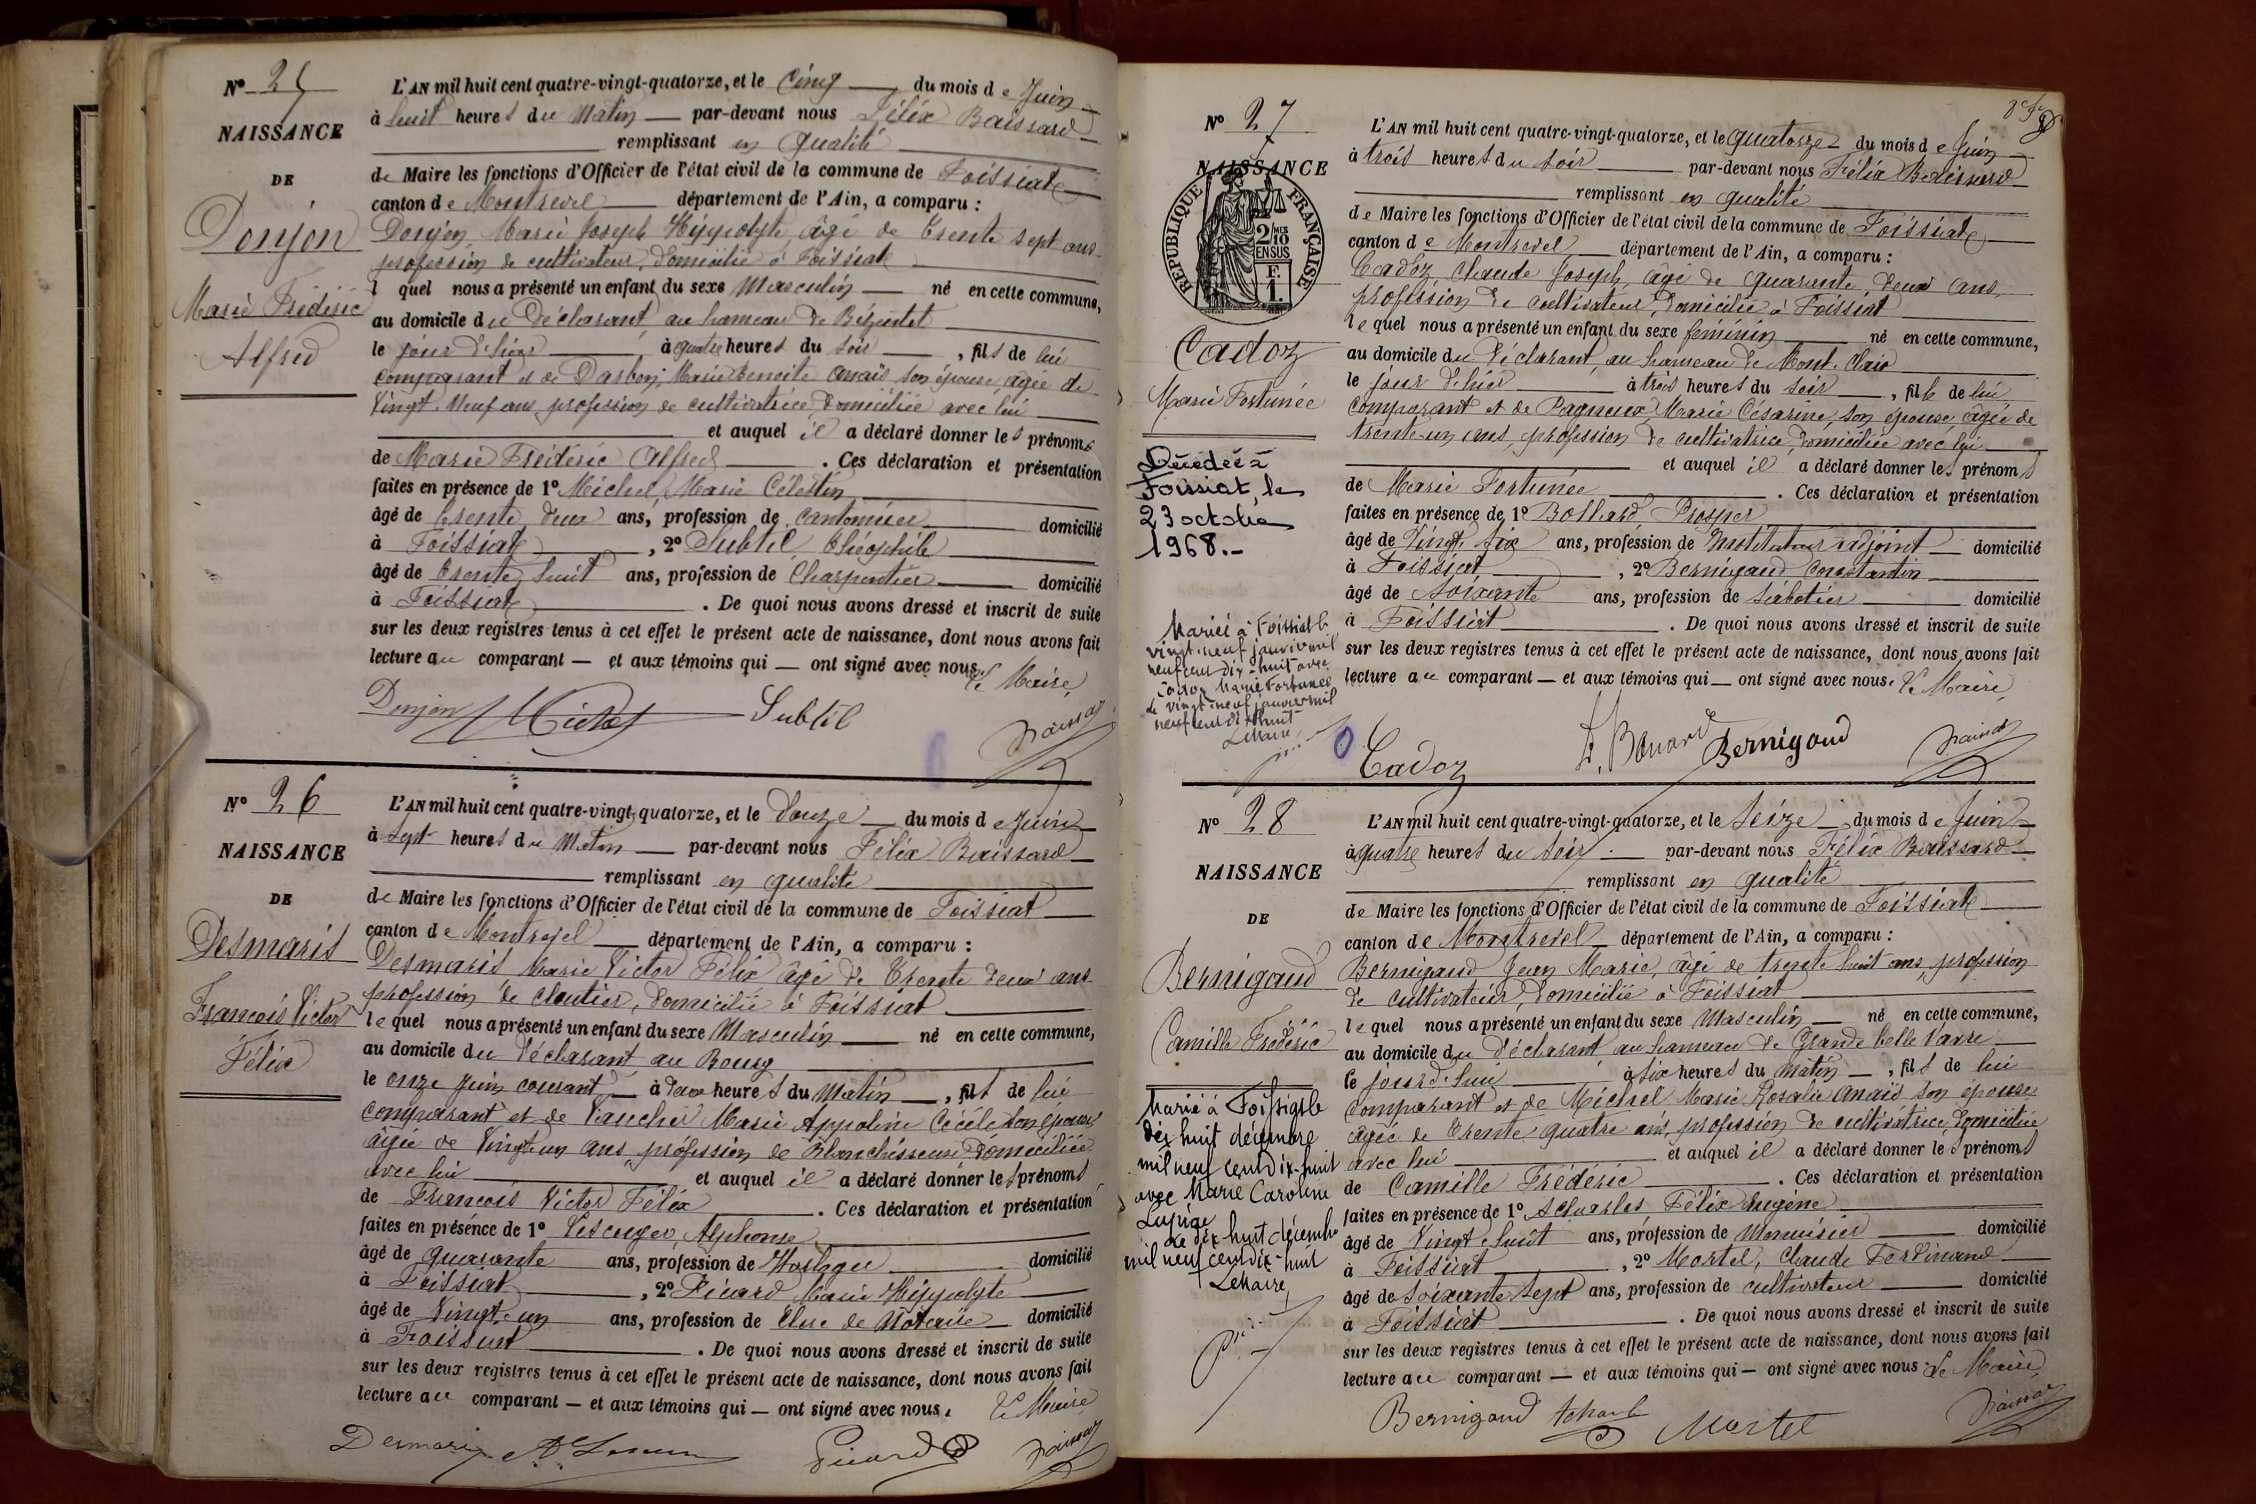 N° 25
NAISSANCE
DE
Donjon
Marie Frédéric
Alfred
L'AN mil huit cent quatre-vingt-quatorze, et le Cinq du mois de Juin
à huit heures du Matin par-devant nous Félix Baissard
remplissant en qualité
de Maire les fonctions d'Officier de l'état civil de la commune de Foissiat
canton de Montrevel département de l'Ain, a comparu :
Donjon Marie Joseph Hippolyte âgé de trente sept ans
profession de cultivateur, domicilié à Foissiat
l quel nous a présenté un enfant du sexe Masculin né en cette commune,
au domicile du déclarant, au hameau de
le jour d'hier à quatre heures du soir, fils de lui
comparant et de Darbon, Marie Benoite Anaïs son épouse, âgée de
Vingt-Neuf ans, profession de cultivatrice, domiciliée avec lui
et auquel il a déclaré donner les prénoms
de Marie Frédéric Alfred. Ces déclaration et présentation
faites en présence de 1° Michel, Marie Célestin
âgé de trente deux ans, profession de cantonnier domicilié
à Foissiat, 2° Subtil Théophile
âgé de trente huit ans, profession de Charpentier domicilié
à Foissiat. De quoi nous avons dressé et inscrit de suite
sur les deux registres tenus à cet effet le présent acte de naissance, dont nous avons fait
lecture au comparant — et aux témoins qui — ont signé avec nous. Le Maire,
Donjon Michel Subtil Baissard
N° 26
NAISSANCE
DE
Desmaris
François Victor
Félix
L'AN mil huit cent quatre-vingt-quatorze, et le Douze du mois de Juin
à sept heures du Matin par-devant nous Félix Baissard
remplissant en qualité
de Maire les fonctions d'Officier de l'état civil de la commune de Foissiat
canton de Montrevel département de l'Ain, a comparu :
Desmaris Marie Victor Félix âgé de trente deux ans
profession de cloutier, domicilié à Foissiat
lequel nous a présenté un enfant du sexe Masculin né en cette commune,
au domicile du déclarant, au Bourg
le onze Juin courant à deux heures du Matin, fils de lui
comparant et de Vaucher Marie Appoline Cécile son épouse
âgée de Vingt-un ans, profession de Blanchisseuse domiciliée
avec lui et auquel il a déclaré donner les prénoms
de François Victor Félix. Ces déclaration et présentation
faites en présence de 1° Alphonse
âgé de quarante ans, profession de Horloger domicilié
à Foissiat, 2° Picard Marie Hippolyte
âgé de Vingt-un ans, profession de Clerc de Notaire domicilié
à Foissiat. De quoi nous avons dressé et inscrit de suite
sur les deux registres tenus à cet effet le présent acte de naissance, dont nous avons fait
lecture au comparant — et aux témoins qui — ont signé avec nous. Le Maire
Desmaris Picard Baissard
N° 27
NAISSANCE
RÉPUBLIQUE FRANÇAISE
2 MES
10
EN SUS
F.
1.
Cadoz
Marie Fortunée
Décédée à
Foissiat, le
23 octobre
1968.-
Mariée à Foissiat le
vingt-neuf janvier mil
neuf cent dix-huit avec
Cadoz Marie Fortunée
le vingt-neuf janvier mil
neuf cent dix huit
Le Maire,
L'AN mil huit cent quatre-vingt-quatorze, et le quatorze du mois de Juin
à trois heures du soir par-devant nous Félix Baissard
remplissant en qualité
de Maire les fonctions d'Officier de l'état civil de la commune de Foissiat
canton de Montrevel département de l'Ain, a comparu :
Cadoz Claude Joseph, âgé de quarante deux ans,
profession de cultivateur, domicilié à Foissiat
lequel nous a présenté un enfant du sexe féminin né en cette commune,
au domicile du déclarant, au hameau de Mont-Clair
le jour d'hier à trois heures du soir, fille de lui
comparant et de Pagneux Marie Césarine, son épouse, âgée de
trente-un ans, profession de cultivatrice, domiciliée avec lui
et auquel il a déclaré donner les prénoms
de Marie Fortunée. Ces déclaration et présentation
faites en présence de 1° Prosper
âgé de Vingt-six ans, profession de Instituteur adjoint domicilié
à Foissiat, 2° Bernigaud Constantin
âgé de soixante ans, profession de sabotier domicilié
à Foissiat. De quoi nous avons dressé et inscrit de suite
sur les deux registres tenus à cet effet le présent acte de naissance, dont nous avons fait
lecture au comparant — et aux témoins qui — ont signé avec nous. Le Maire,
Cadoz Bernigaud Baissard
N° 28
NAISSANCE
DE
Bernigaud
Camille Frédéric
Marié à Foissiat le
dix huit décembre
mil neuf cent dix-huit
avec Marie Caroline
Le dix-huit décembre
mil neuf cent dix-huit
Le Maire,
L'AN mil huit cent quatre-vingt-quatorze, et le Seize du mois de Juin
à quatre heures du soir par-devant nous Félix Baissard
remplissant en qualité
de Maire les fonctions d'Officier de l'état civil de la commune de Foissiat
canton de Montrevel département de l'Ain, a comparu :
Bernigaud Jean Marie, âgé de trente huit ans, profession
de cultivateur, domicilié à Foissiat
lequel nous a présenté un enfant du sexe Masculin né en cette commune,
au domicile du déclarant au hameau de Grande Belle Varre
le jour d'hui à six heures du matin, fils de lui
comparant et de Michel Marie Rosalie Anaïs son épouse
âgée de trente quatre ans, profession de cultivatrice, domiciliée
avec lui et auquel il a déclaré donner les prénoms
de Camille Frédéric. Ces déclaration et présentation
faites en présence de 1° Félix Eugène
âgé de Vingt-huit ans, profession de Menuisier domicilié
à Foissiat, 2° Mortel, Claude Ferdinand
âgé de soixante sept ans, profession de cultivateur domicilié
à Foissiat. De quoi nous avons dressé et inscrit de suite
sur les deux registres tenus à cet effet le présent acte de naissance, dont nous avons fait
lecture au comparant — et aux témoins qui — ont signé avec nous. Le Maire,
Bernigaud Mortel Baissard